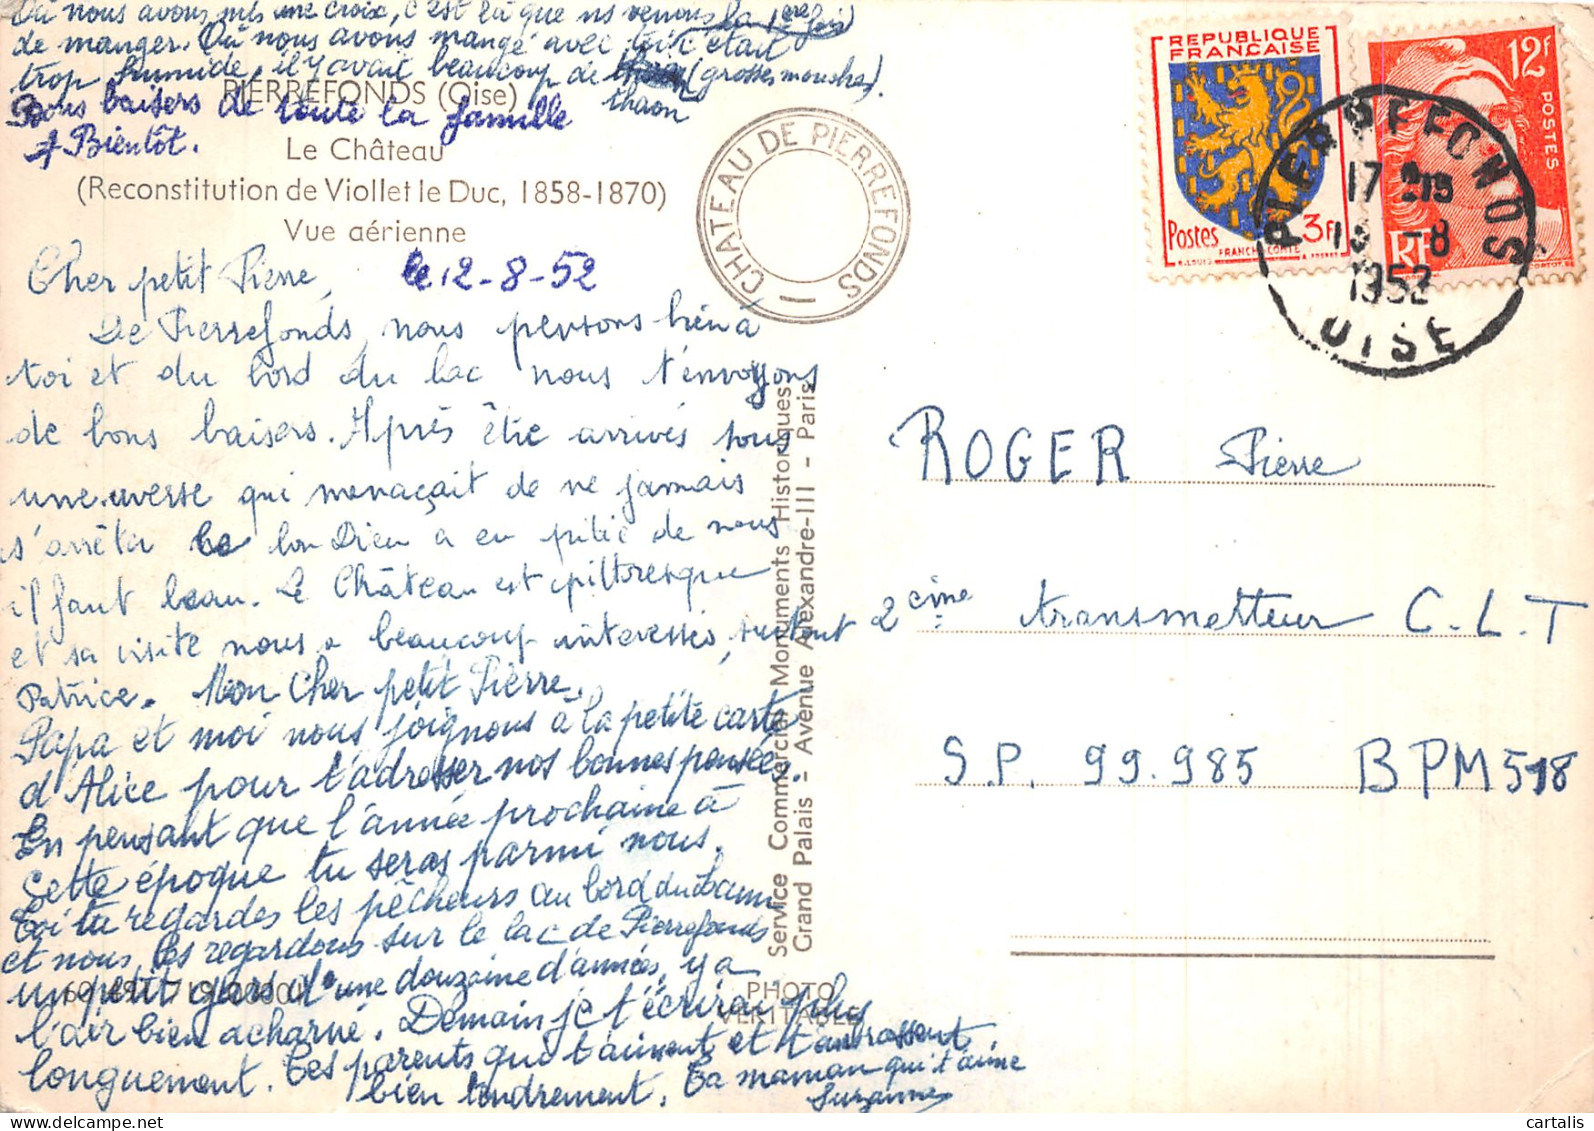 Où nous avons mis une croix, c'est là que ns venons (la 1ère fois)
de manger. Où nous avons mangé avec toi c'était
trop humide, il y avait beaucoup de (grosses mouches).
thaon
Bons baisers de toute la famille
A Bientôt.
PIERREFONDS (Oise)
Le Château
(Reconstitution de Viollet le Duc, 1858-1870)
Vue aérienne
Cher petit Pierre, le 12-8-52
De Pierrefonds nous pensons bien à
toi et du bord du lac nous t'envoyons
de bons baisers. Après être arrivés sous
une averse qui menaçait de ne jamais
s'arrêter le bon Dieu a eu pitié de nous
il faut beau. Le Château est pittoresque
et sa visite nous a beaucoup intéressés, surtout
Patrice. Mon Cher petit Pierre.
Papa et moi nous joignons à la petite carte
d'Alice pour t'adresser nos bonnes pensées.
En pensant que l'année prochaine à
cette époque tu seras parmi nous.
Toi tu regardes les pêcheurs au bord du
et nous les regardons sur le lac de Pierrefonds
un petit gars d'une douzaine d'années, y a
l'air bien acharné. Demain je t'écrirai plus
longuement. Tes parents qui t'aiment et t'embrassent
bien tendrement. Ta maman qui t'aime
Suzanne
CHATEAU DE PIERREFONDS
REPUBLIQUE
FRANÇAISE
Postes 3F
FRANCHE-COMTÉ
12F
POSTES
RF
PIERREFONDS
17 15
-8
1952
OISE
ROGER Pierre
2ème transmetteur C.L.T
S.P. 99.985 BPM 518
Service Commercial Monuments Historiques
Grand Palais - Avenue Alexandre-III - Paris
PHOTO
VÉRITABLE